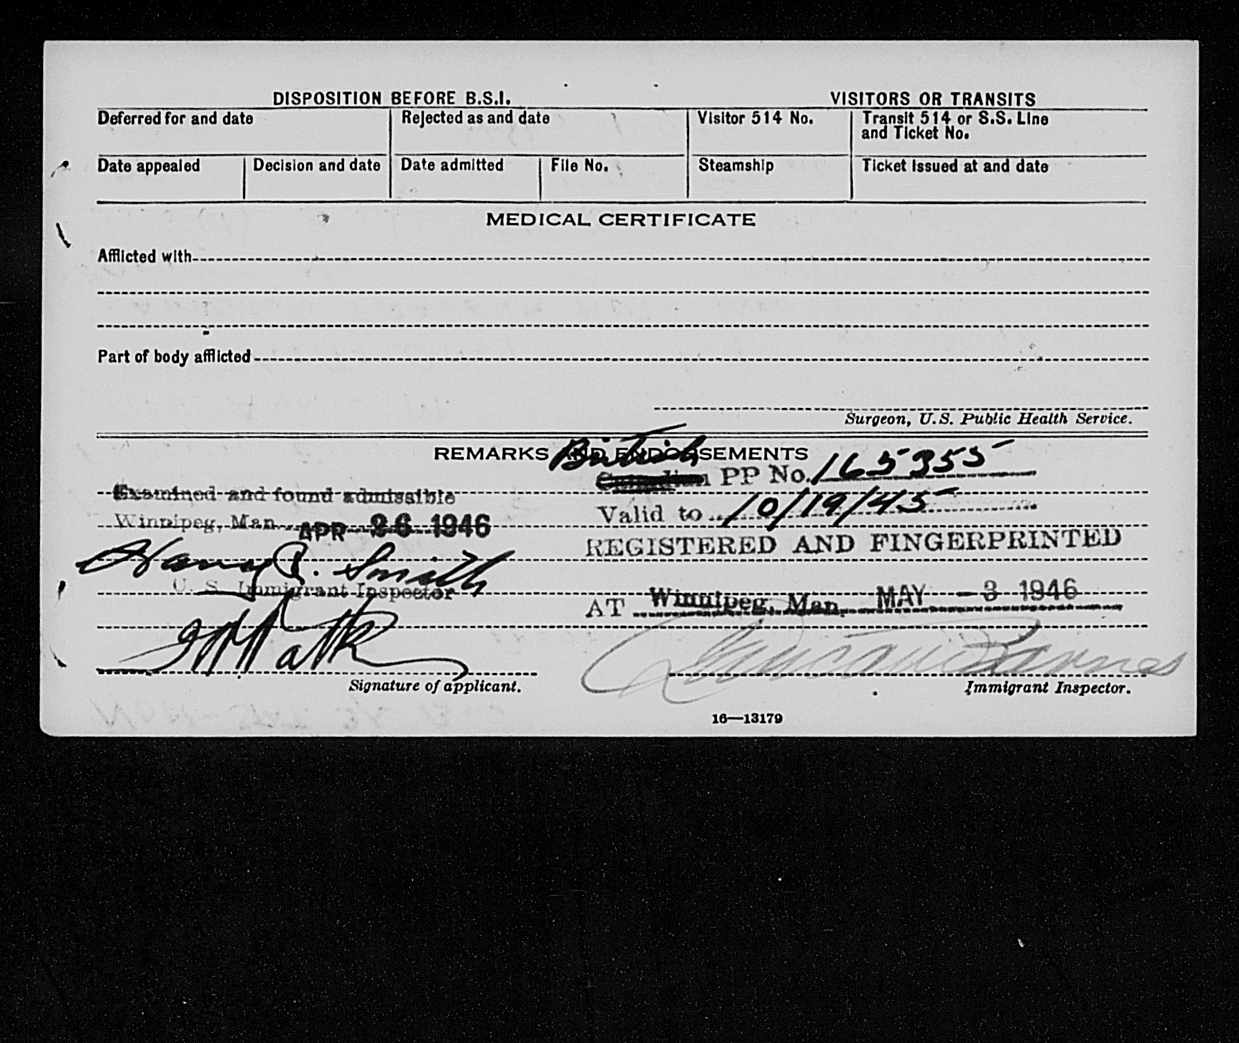 DISPOSITION BEFORE B.S.I. VISITORS OR TRANSITS
Deferred for and date Rejected as and date Visitor 514 No. Transit 514 or S.S. Line
and Ticket No.
Date appealed Decision and date Date admitted File No. Steamship Ticket issued at and date
MEDICAL CERTIFICATE
Afflicted with
Part of body afflicted
Surgeon, U.S. Public Health Service.
REMARKS AND ENDORSEMENTS
British
Canadian PP No. 165355
Examined and found admissible
Valid to 10/19/45
Winnipeg, Man. APR 26 1946
REGISTERED AND FINGERPRINTED
Harry R. Smith
U. S. Immigrant Inspector
AT Winnipeg, Man. MAY - 3 1946
Barnes
Signature of applicant. Immigrant Inspector.
16—13179